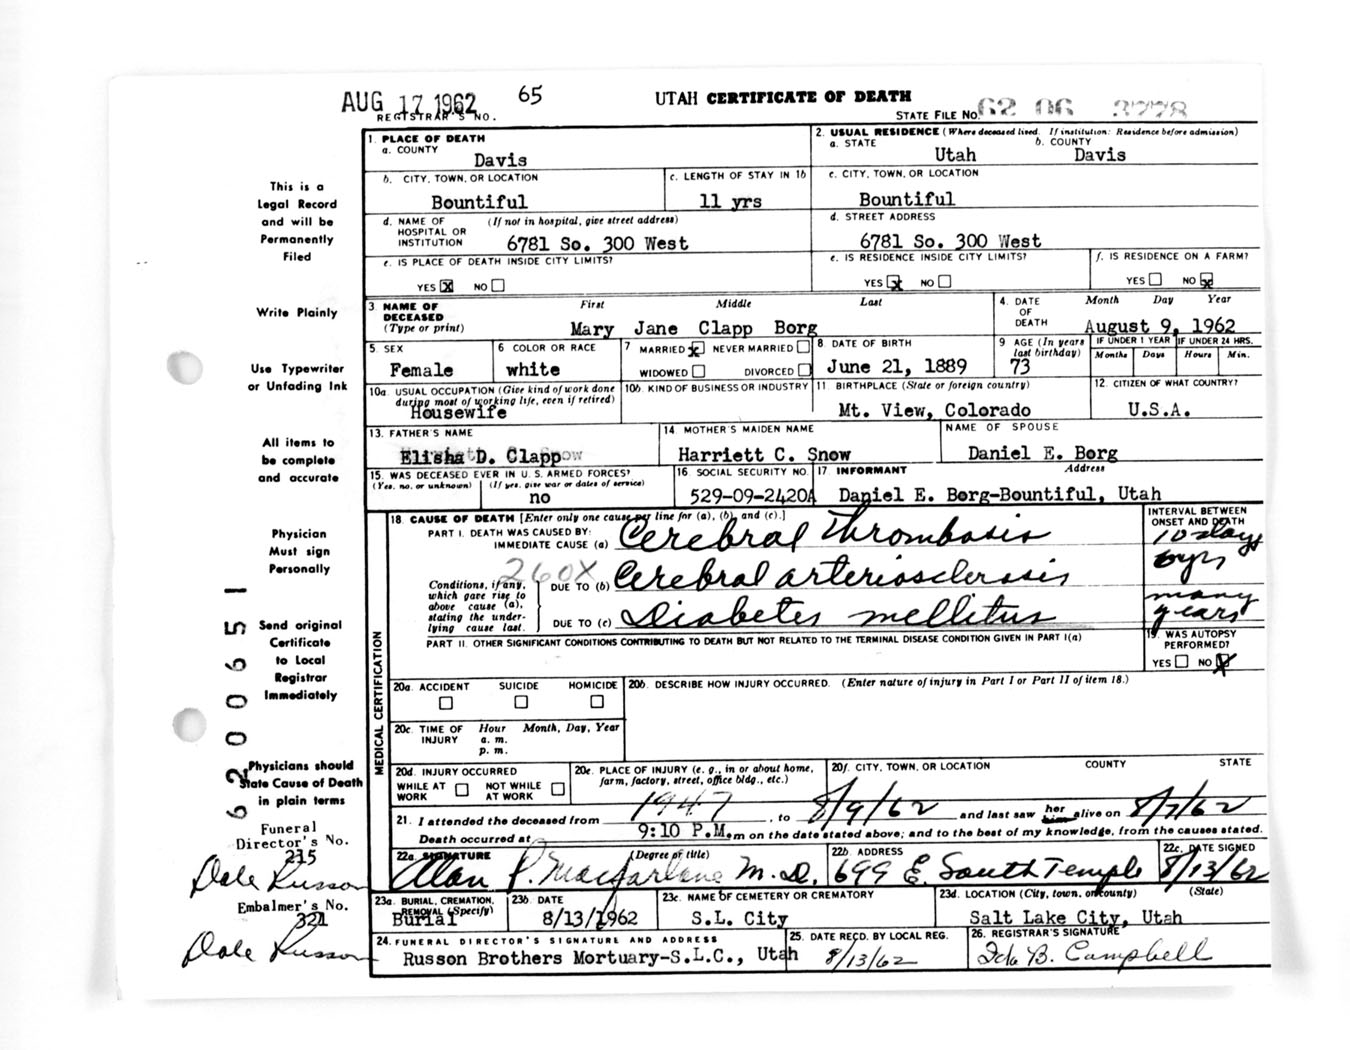 AUG 17 1962 65 UTAH CERTIFICATE OF DEATH
REGISTRAR'S NO. STATE FILE NO. 62 06 3778
1. PLACE OF DEATH
a. COUNTY
Davis
2. USUAL RESIDENCE (Where deceased lived. If institution: Residence before admission)
a. STATE b. COUNTY
Utah Davis
b. CITY, TOWN, OR LOCATION
Bountiful
c. LENGTH OF STAY IN 1b
11 yrs
c. CITY, TOWN, OR LOCATION
Bountiful
d. NAME OF (If not in hospital, give street address)
HOSPITAL OR
INSTITUTION 6781 So. 300 West
d. STREET ADDRESS
6781 So. 300 West
e. IS PLACE OF DEATH INSIDE CITY LIMITS?
YES X NO
e. IS RESIDENCE INSIDE CITY LIMITS?
YES X NO
f. IS RESIDENCE ON A FARM?
YES NO X
3. NAME OF First Middle Last
DECEASED
(Type or print) Mary Jane Clapp Borg
4. DATE Month Day Year
OF
DEATH August 9, 1962
5. SEX
Female
6 COLOR OR RACE
white
7 MARRIED X NEVER MARRIED
WIDOWED DIVORCED
8 DATE OF BIRTH
June 21, 1889
9 AGE (In years
last birthday)
73
IF UNDER 1 YEAR IF UNDER 24 HRS.
Months Days Hours Min.
10a. USUAL OCCUPATION (Give kind of work done
during most of working life, even if retired)
Housewife
10b. KIND OF BUSINESS OR INDUSTRY
11. BIRTHPLACE (State or foreign country)
Mt. View, Colorado
12. CITIZEN OF WHAT COUNTRY?
U.S.A.
13. FATHER'S NAME
Elisha D. Clapp
14 MOTHER'S MAIDEN NAME
Harriett C. Snow
NAME OF SPOUSE
Daniel E. Borg
15. WAS DECEASED EVER IN U. S. ARMED FORCES?
(Yes, no, or unknown) (If yes, give war or dates of service)
no
16. SOCIAL SECURITY NO.
529-09-2420A
17. INFORMANT Address
Daniel E. Borg-Bountiful, Utah
MEDICAL CERTIFICATION
18. CAUSE OF DEATH [Enter only one cause per line for (a), (b), and (c).]
PART I. DEATH WAS CAUSED BY:
IMMEDIATE CAUSE (a) Cerebral Thrombosis
INTERVAL BETWEEN
ONSET AND DEATH
10 days
260X
Conditions, if any,
which gave rise to
above cause (a),
stating the under-
lying cause last.
DUE TO (b) Cerebral arteriosclerosis
yrs
DUE TO (c) Diabetes mellitus
many
years
PART II. OTHER SIGNIFICANT CONDITIONS CONTRIBUTING TO DEATH BUT NOT RELATED TO THE TERMINAL DISEASE CONDITION GIVEN IN PART I(a)
19. WAS AUTOPSY
PERFORMED?
YES NO X
20a. ACCIDENT SUICIDE HOMICIDE
20b. DESCRIBE HOW INJURY OCCURRED. (Enter nature of injury in Part I or Part II of item 18.)
20c. TIME OF Hour Month, Day, Year
INJURY a. m.
p. m.
20d. INJURY OCCURRED
WHILE AT NOT WHILE
WORK AT WORK
20e. PLACE OF INJURY (e. g., in or about home,
farm, factory, street, office bldg., etc.)
20f. CITY, TOWN, OR LOCATION COUNTY STATE
21. I attended the deceased from 1947, to 8/9/62 and last saw her him alive on 8/7/62
Death occurred at 9:10 P.M. m on the date stated above; and to the best of my knowledge, from the causes stated.
22a. SIGNATURE (Degree or title)
Alan P. Macfarlane M.D.
22b. ADDRESS
699 E. South Temple
22c. DATE SIGNED
8/13/62
23a. BURIAL, CREMATION,
REMOVAL (Specify)
Burial
23b. DATE
8/13/1962
23c. NAME OF CEMETERY OR CREMATORY
S.L. City
23d. LOCATION (City, town, or county) (State)
Salt Lake City, Utah
24. FUNERAL DIRECTOR'S SIGNATURE AND ADDRESS
Russon Brothers Mortuary-S.L.C., Utah
25. DATE RECD. BY LOCAL REG.
8/13/62
26. REGISTRAR'S SIGNATURE
Ida B. Campbell
This is a
Legal Record
and will be
Permanently
Filed
Write Plainly
Use Typewriter
or Unfading Ink
All items to
be complete
and accurate
Physician
Must sign
Personally
Send original
Certificate
to Local
Registrar
Immediately
Physicians should
State Cause of Death
in plain terms
Funeral
Director's No.
215
Dale Russon
Embalmer's No.
321
Dale Russon
6200651